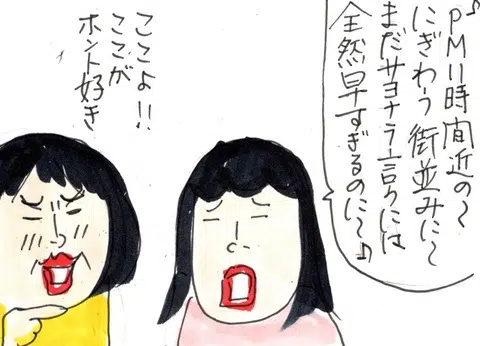 ♪PM11時間近の〜
にぎわう街並みに〜
まだサヨナラ言うには
全然早すぎるのに〜♪
ここよ!!
ここが
ホント好き